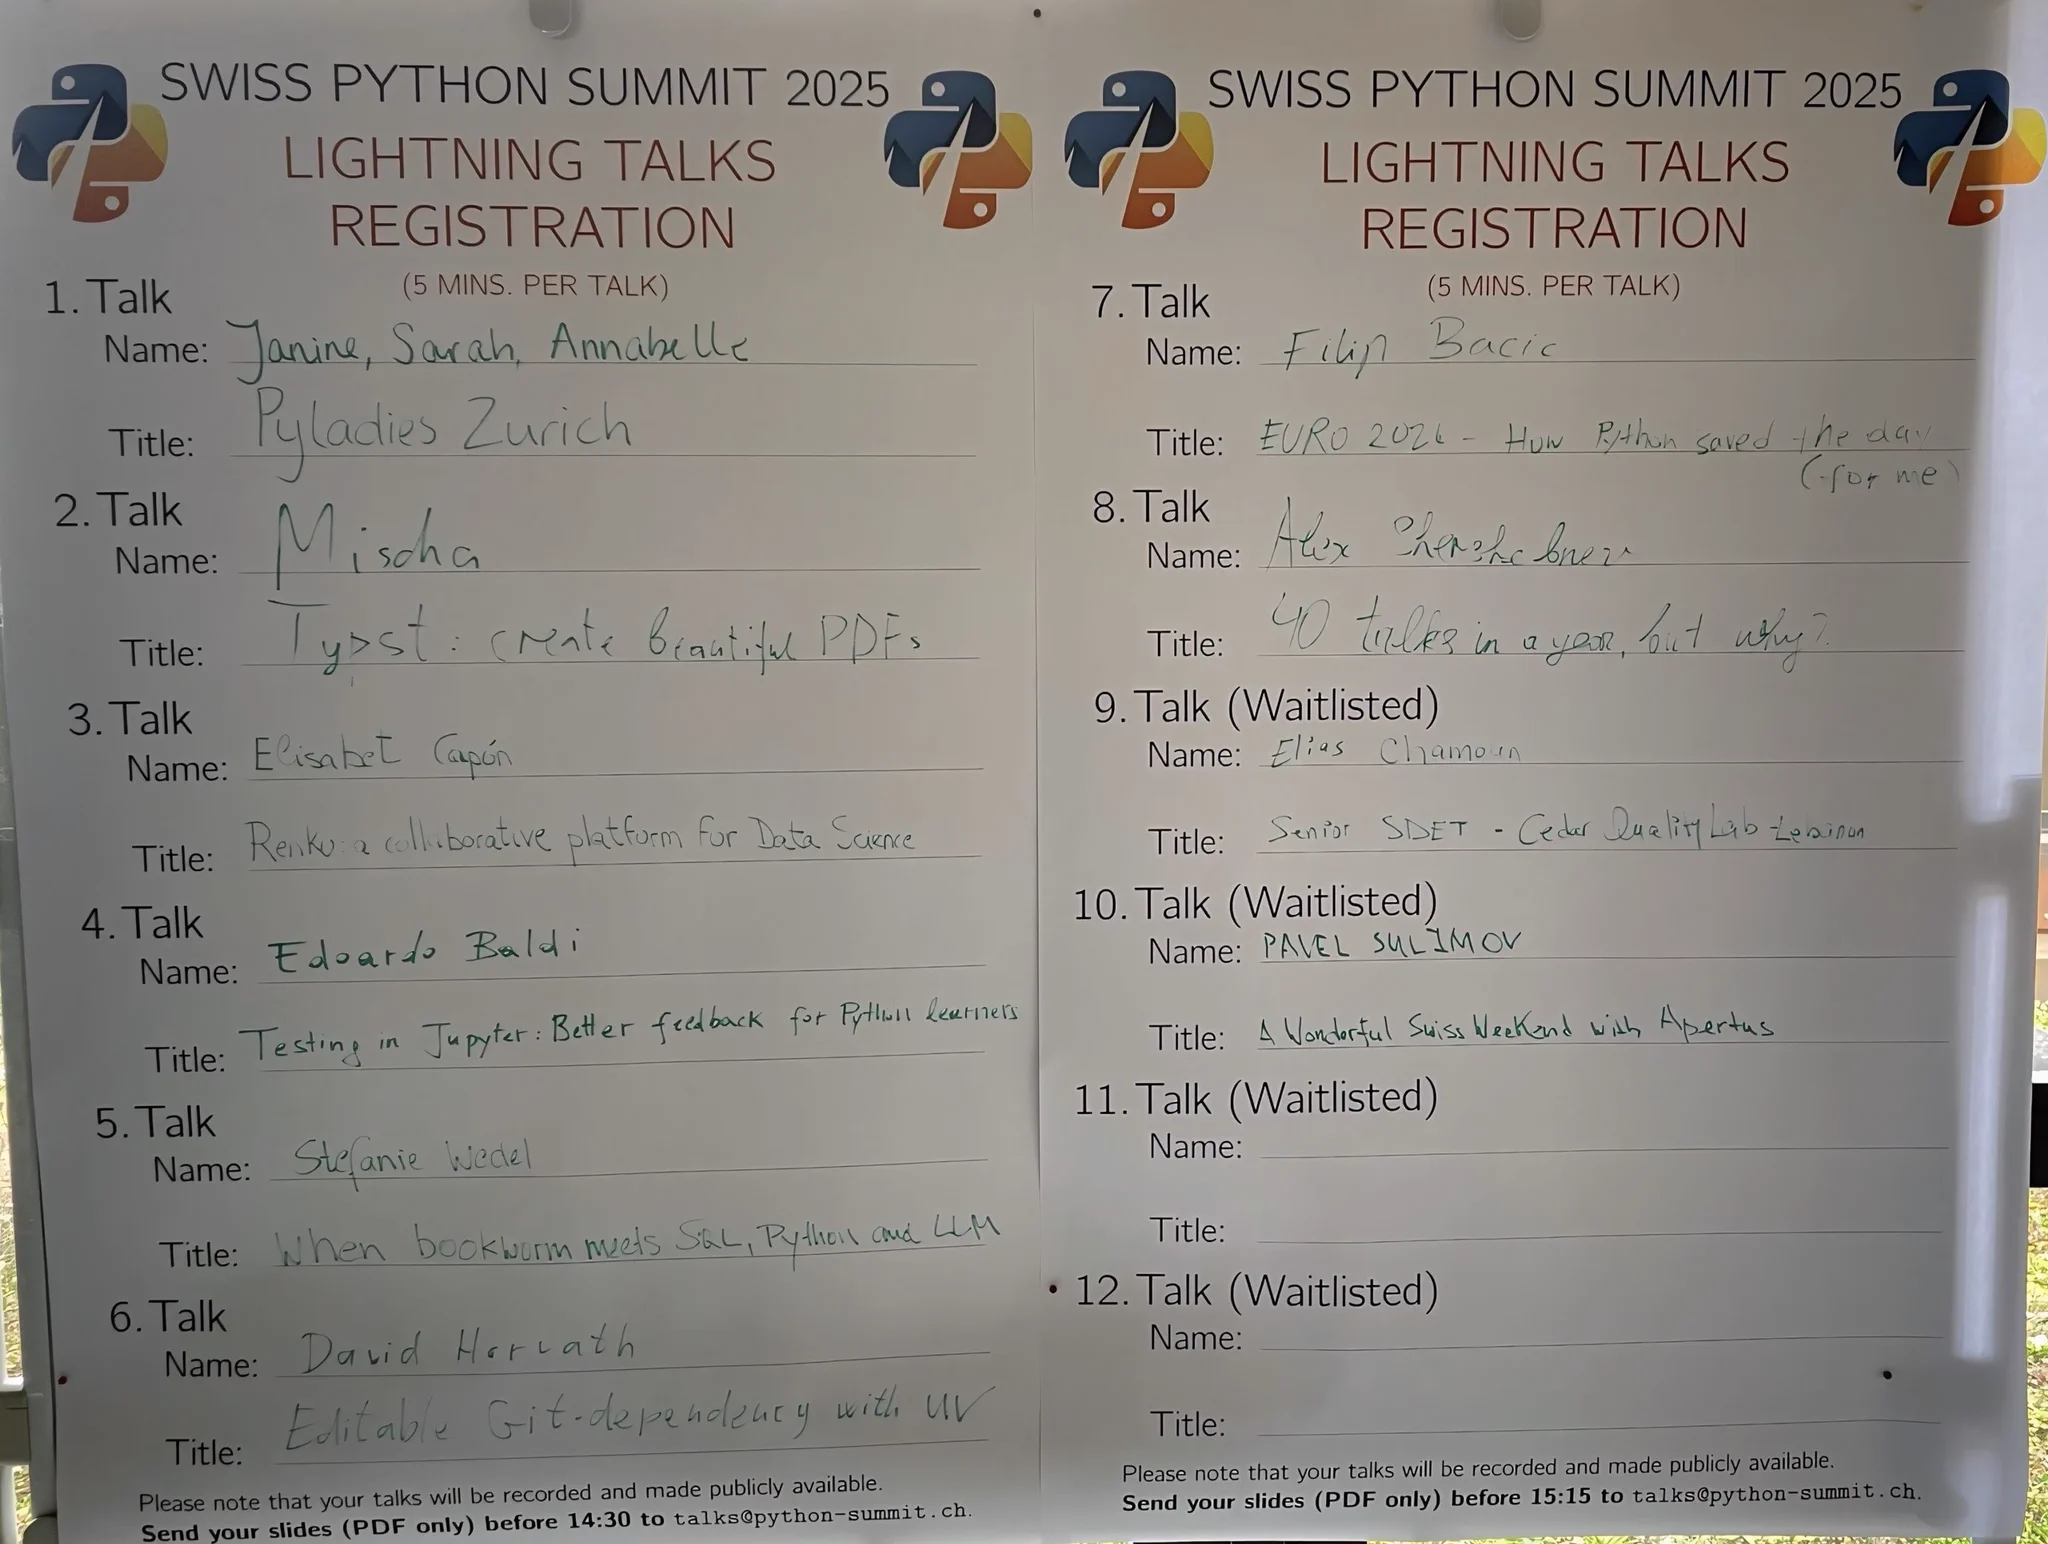 SWISS PYTHON SUMMIT 2025
LIGHTNING TALKS
REGISTRATION
(5 MINS. PER TALK)
1. Talk
Name: Janine, Sarah, Annabelle
Title: Pyladies Zurich
2. Talk
Name: Mischa
Title: Typst: create beautiful PDFs
3. Talk
Name: Elisabet Capón
Title: Renku: a collaborative platform for Data Science
4. Talk
Name: Edoardo Baldi
Title: Testing in Jupyter: Better feedback for Python learners
5. Talk
Name: Stefanie Wedel
Title: When bookworm meets SQL, Python and LLM
6. Talk
Name: David Horvath
Title: Editable Git-dependency with UV
Please note that your talks will be recorded and made publicly available.
Send your slides (PDF only) before 14:30 to talks@python-summit.ch.
SWISS PYTHON SUMMIT 2025
LIGHTNING TALKS
REGISTRATION
(5 MINS. PER TALK)
7. Talk
Name: Filip Bacic
Title: EURO - How Python saved the day
(for me)
8. Talk
Name: Alex
Title: 40 talks in a year, but why?
9. Talk (Waitlisted)
Name: Elias Chamoun
Title: Senior SDET - Cedar Quality Lab
10. Talk (Waitlisted)
Name: PAVEL SULIMOV
Title: A Wonderful Swiss WeeKend with Apertus
11. Talk (Waitlisted)
Name:
Title:
12. Talk (Waitlisted)
Name:
Title:
Please note that your talks will be recorded and made publicly available.
Send your slides (PDF only) before 15:15 to talks@python-summit.ch.